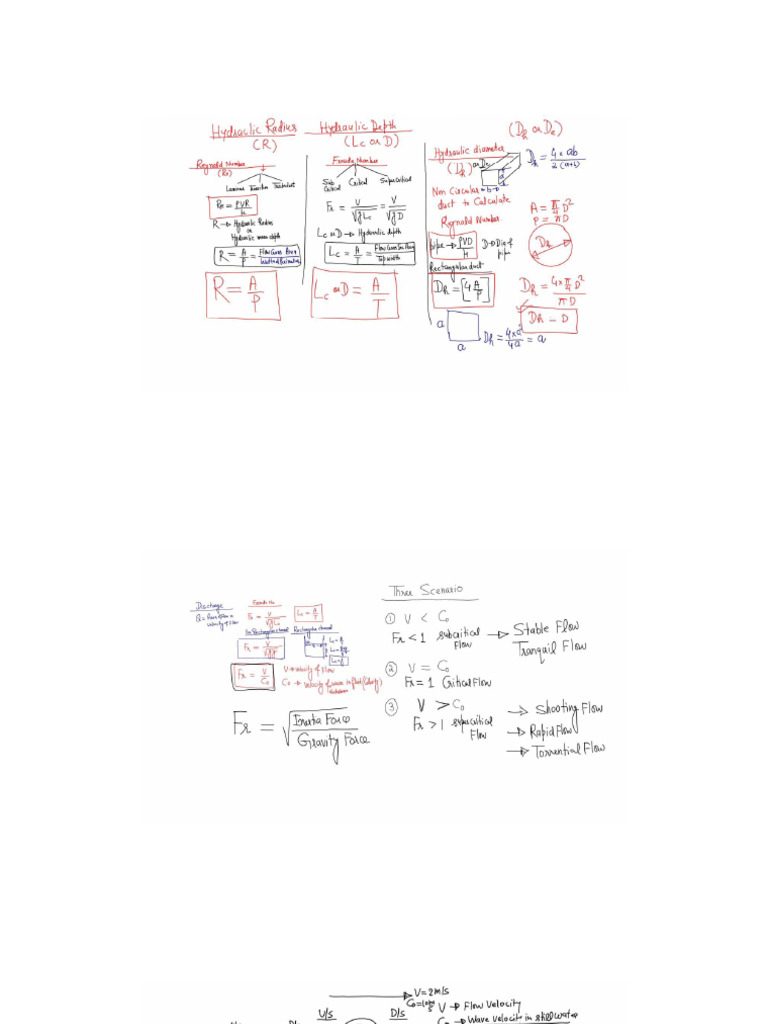 Hydraulic Radius
(R)
Reynold Number
(Re)
Laminar Transition Turbulent
Re = ρVR/μ
R → Hydraulic Radius
or
Hydraulic mean depth
R = A/P = Flow Cross Area/Wetted Perimeter
R = A/P
Hydraulic Depth
(Lc or D)
Froude Number
Sub Critical Critical Supercritical
Fr = V/√gLc = V/√gD
Lc or D → Hydraulic depth
Lc = A/T = Flow Cross Sec Area/Top width
Lc or D = A/T
(Dh or De)
Hydraulic diameter
(Dh) or De
Dh = 4×ab/2(a+b)
a
b
Non Circular
duct to Calculate
Reynold Number
A = π/4 D²
P = πD
Dh
pipe → ρVD/μ D → Dia of pipe
Rectangular duct
Dh = [4A/P]
Dh = 4×π/4 D²/πD
Dh = D
a
a
Dh = 4×a²/4a = a
Discharge
Froude No
Fr = V/√gLc
Lc = A/T
Non Rectangular channel Rectangular channel
Fr = V/Co
V → Velocity of flow
Fr = √Inertia Force/Gravity Force
Three Scenario
① V < Co
Fr < 1 subcritical Flow → Stable Flow
Tranquil Flow
② V = Co
Fr = 1 Critical Flow
③ V > Co
Fr > 1 supercritical Flow
→ Shooting Flow
→ Rapid Flow
→ Torrential Flow
V = 2m/s
U/S D/S
V → Flow Velocity
Co → Wave velocity in still water